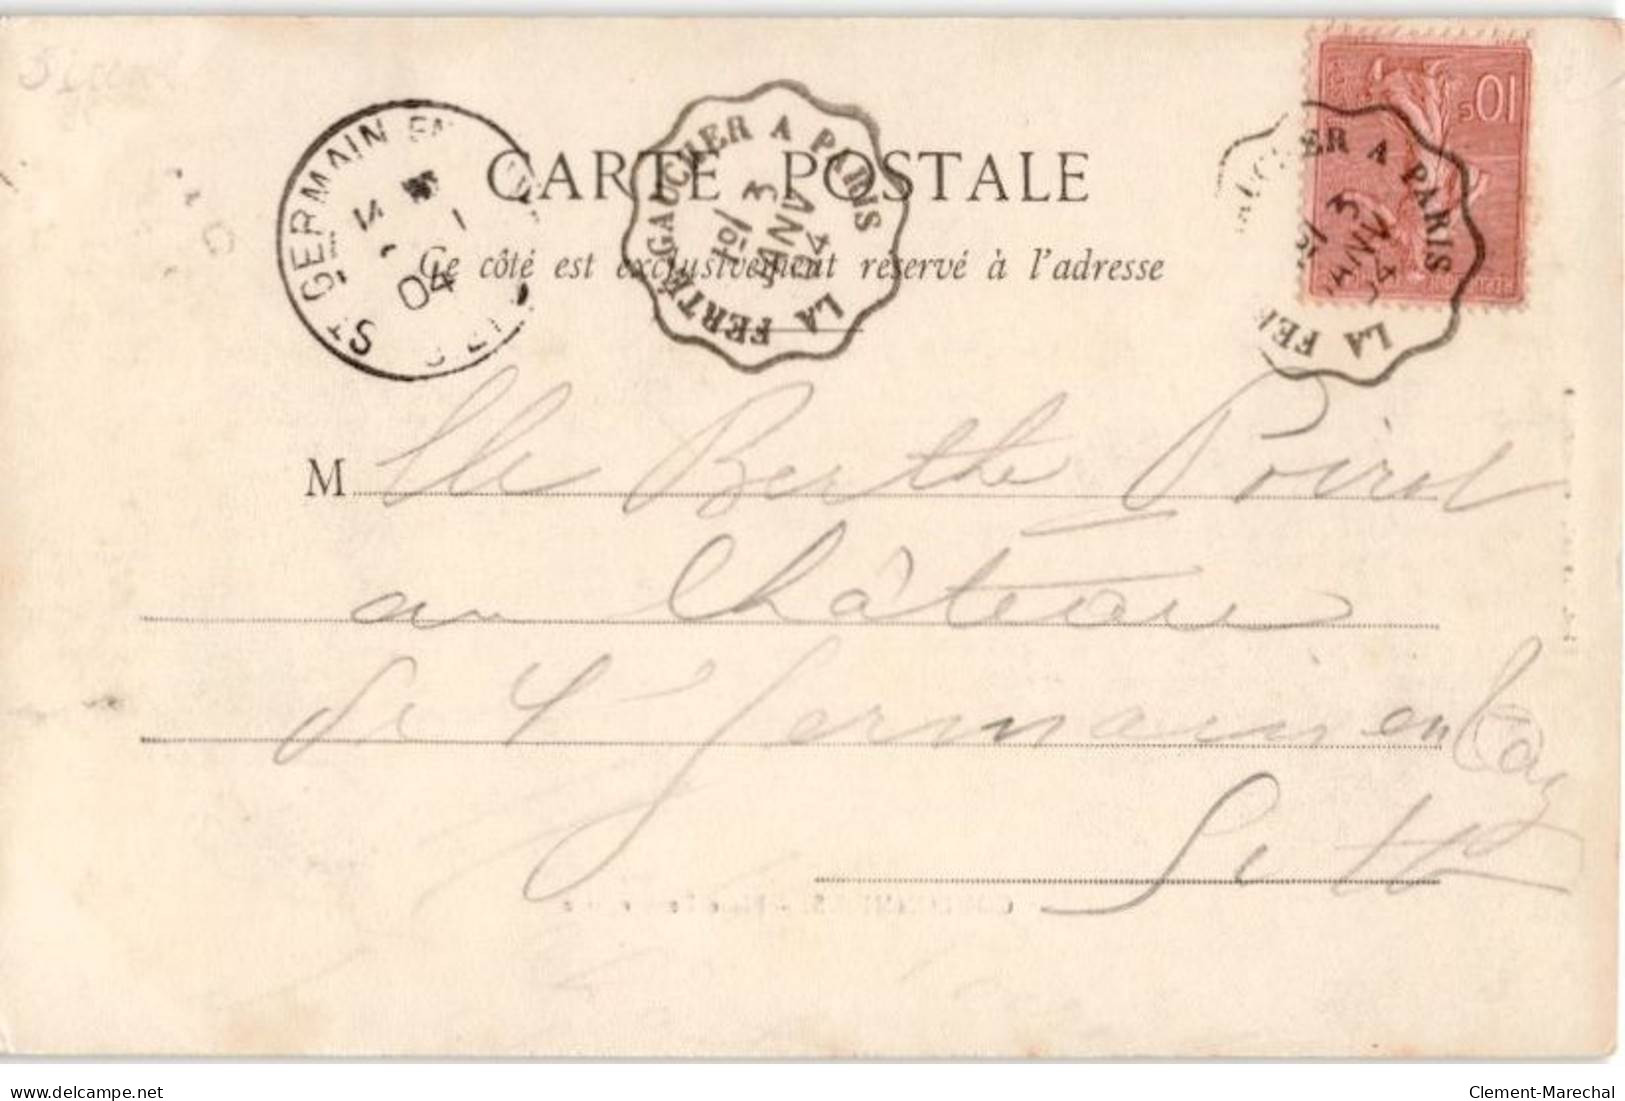 10 c
CARTE POSTALE
Ce côté est exclusivement réservé à l'adresse
ST GERMAIN EN
04
LA FERTÉ-GAUCHER A PARIS
1º/
3
JANV
04
CHER A PARIS
LA FE
3
JANV
04
M lle Berthe Poirot
au Château
de St Germain en Lay
S et M
delcampe.net
Clement-Marechal